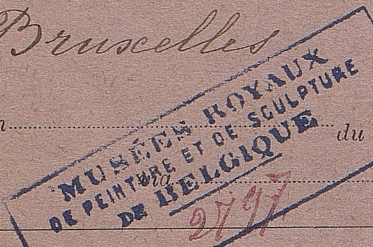 Bruxelles
MUSÉES ROYAUX
DE PEINTURE ET DE SCULPTURE
du
via
DE BELGIQUE
2797